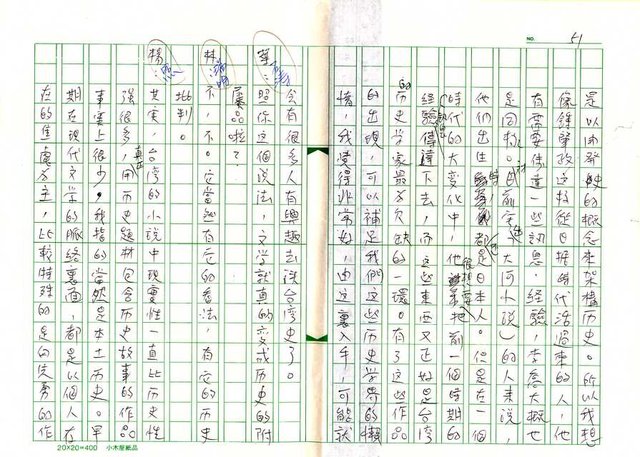 NO. 51
是以開發史的概念來架構歷史。所以我想
像鍾肇政這於從日據時代活過來的人，他
有需要傳達一些訊息、經驗，李喬大概也
是同於。目前寫大河小說的人來說，
他們出生時，都還是日本人。但是在一個
時代的大變化中，他很想要把前一個時期的
經驗傳達下去，而這些東西又正好是台灣
的歷史學家最欠缺的一環。有了這些作品
的出現，可以補足我們歷史學界的懶
惰，我覺得非常好，由這裏入手，可能就
會有很多人有興趣去談台灣史了。
：照你這個說法，文學就真的變成歷史的附
庸品啦？
林瑞明：不，不。它當然有它的看法，有它的歷史
批判。
楊照：其實，台灣的小說中現實性一直比歷史性
強很多，真正用歷史題材包含歷史故事的作品
事實上很少，我指的當然是本土歷史。早
期在現代文學的脈絡裏面，都是以個人在
在的焦慮為主，比較特殊的是白先勇的作
20×20=400 小木屋紙品